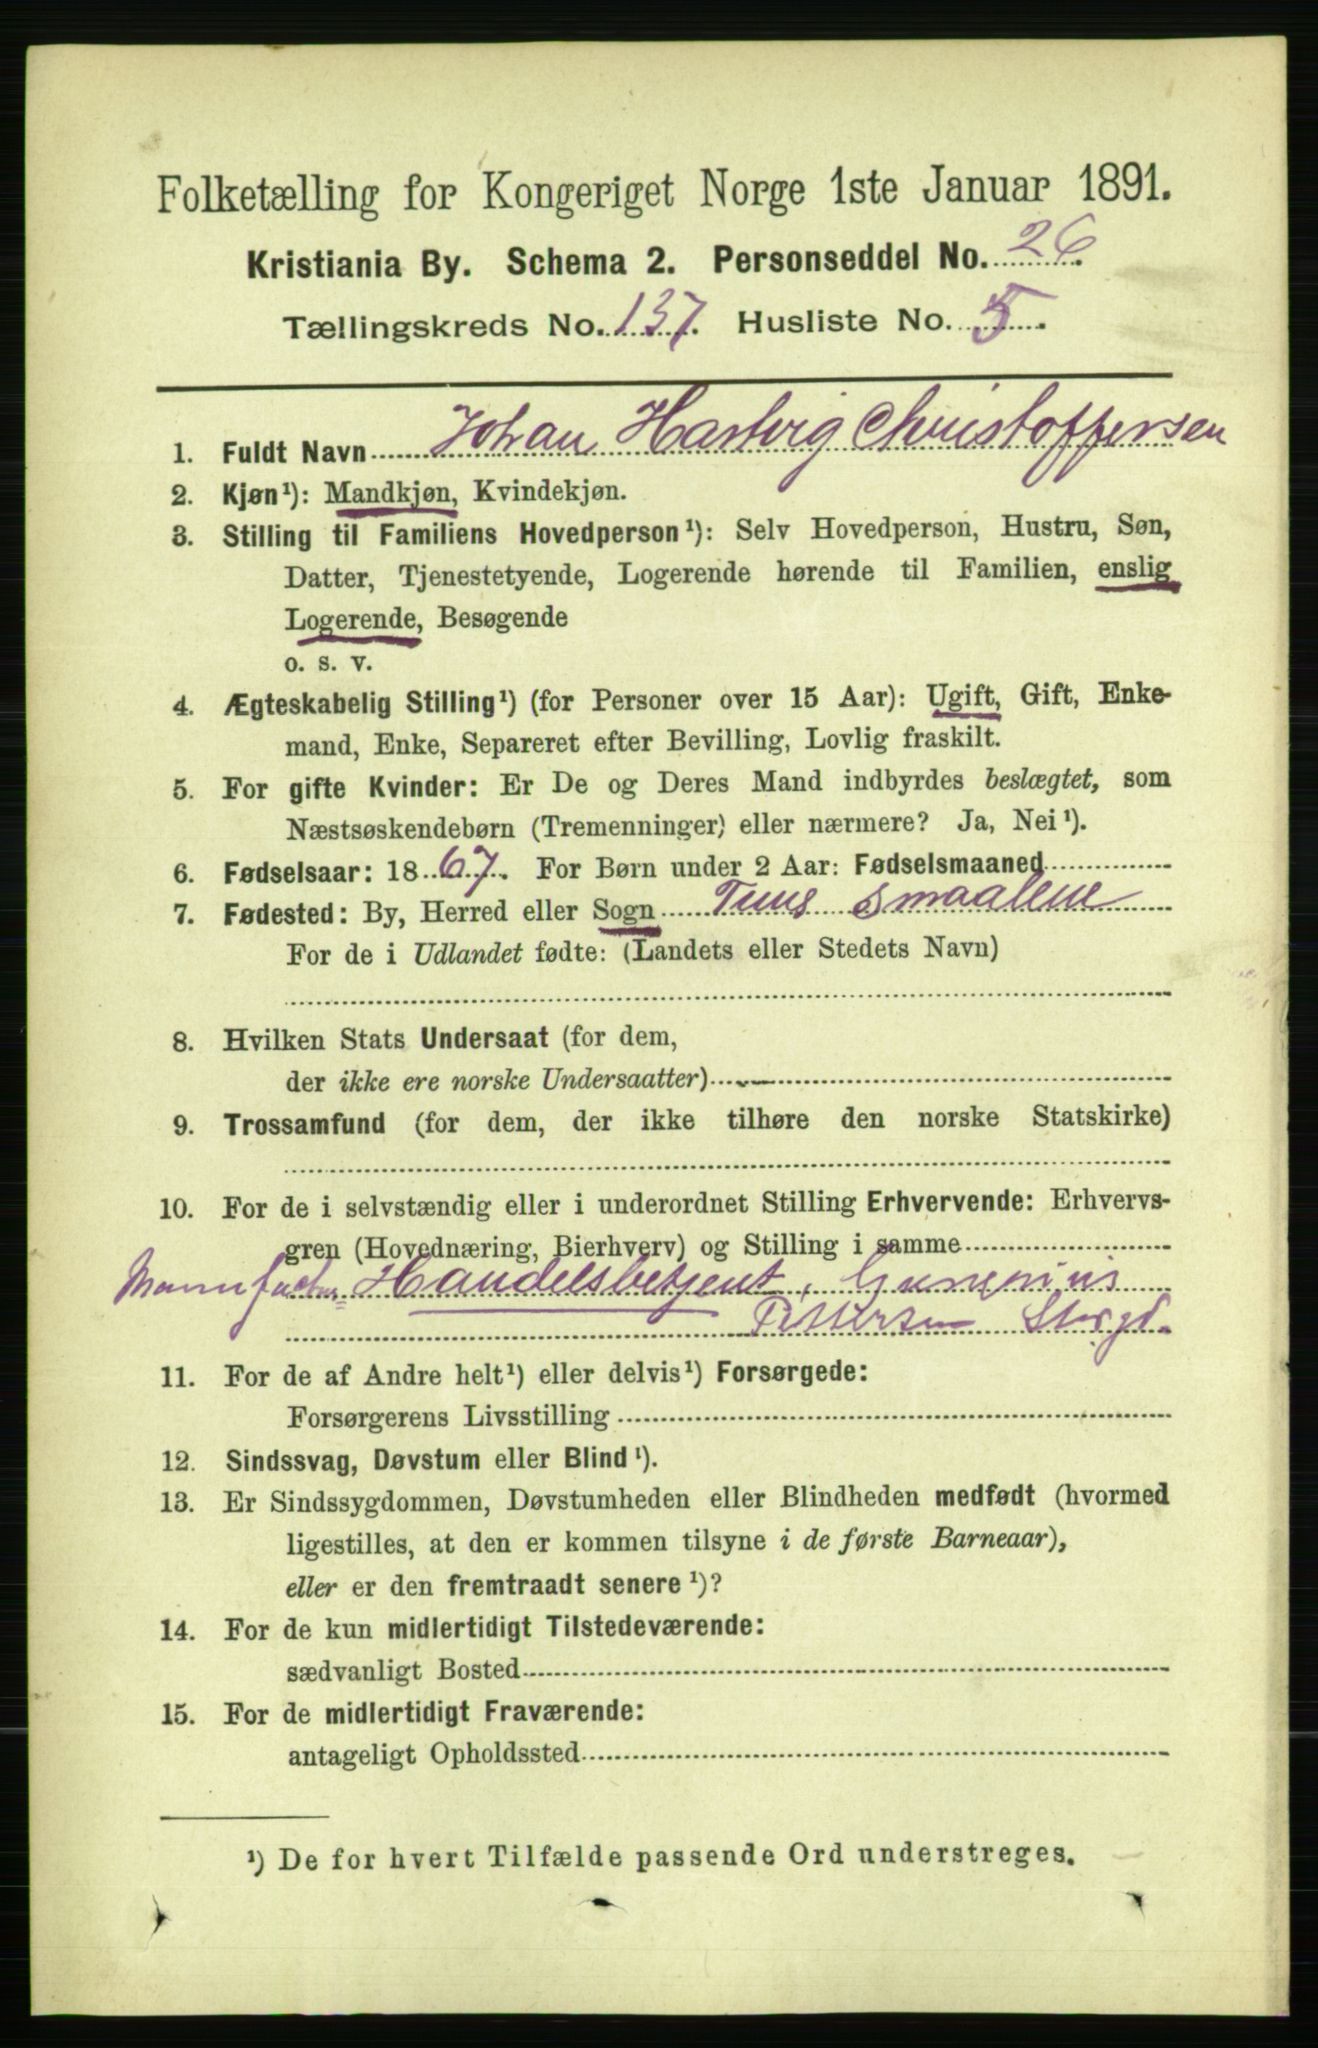 Folketælling for Kongeriget Norge 1ste Januar 1891.
Kristiania By. Schema 2. Personseddel No. 26.
Tællingskreds No. 137. Husliste No. 5.
1. Fuldt Navn Johan Hartvig Christoffersen
2. Kjøn¹): Mandkjøn, Kvindekjøn.
3. Stilling til Familiens Hovedperson¹): Selv Hovedperson, Hustru, Søn,
Datter, Tjenestetyende, Logerende hørende til Familien, enslig
Logerende, Besøgende
o. s. v.
4. Ægteskabelig Stilling¹) (for Personer over 15 Aar): Ugift, Gift, Enke-
mand, Enke, Separeret efter Bevilling, Lovlig fraskilt.
5. For gifte Kvinder: Er De og Deres Mand indbyrdes beslægtet, som
Næstsøskendebørn (Tremenninger) eller nærmere? Ja, Nei¹).
6. Fødselsaar: 1867. For Børn under 2 Aar: Fødselsmaaned
7. Fødested: By, Herred eller Sogn Tuns Smaalene
For de i Udlandet fødte: (Landets eller Stedets Navn)
8. Hvilken Stats Undersaat (for dem,
der ikke ere norske Undersaatter)
9. Trossamfund (for dem, der ikke tilhøre den norske Statskirke)
10. For de i selvstændig eller i underordnet Stilling Erhvervende: Erhvervs-
gren (Hovednæring, Bierhverv) og Stilling i samme
Handelsbetjent,
Pettersen Storgd.
11. For de af Andre helt¹) eller delvis¹) Forsørgede:
Forsørgerens Livsstilling
12. Sindssvag, Døvstum eller Blind¹).
13. Er Sindssygdommen, Døvstumheden eller Blindheden medfødt (hvormed
ligestilles, at den er kommen tilsyne i de første Barneaar),
eller er den fremtraadt senere¹)?
14. For de kun midlertidigt Tilstedeværende:
sædvanligt Bosted
15. For de midlertidigt Fraværende:
antageligt Opholdssted
¹) De for hvert Tilfælde passende Ord understreges.